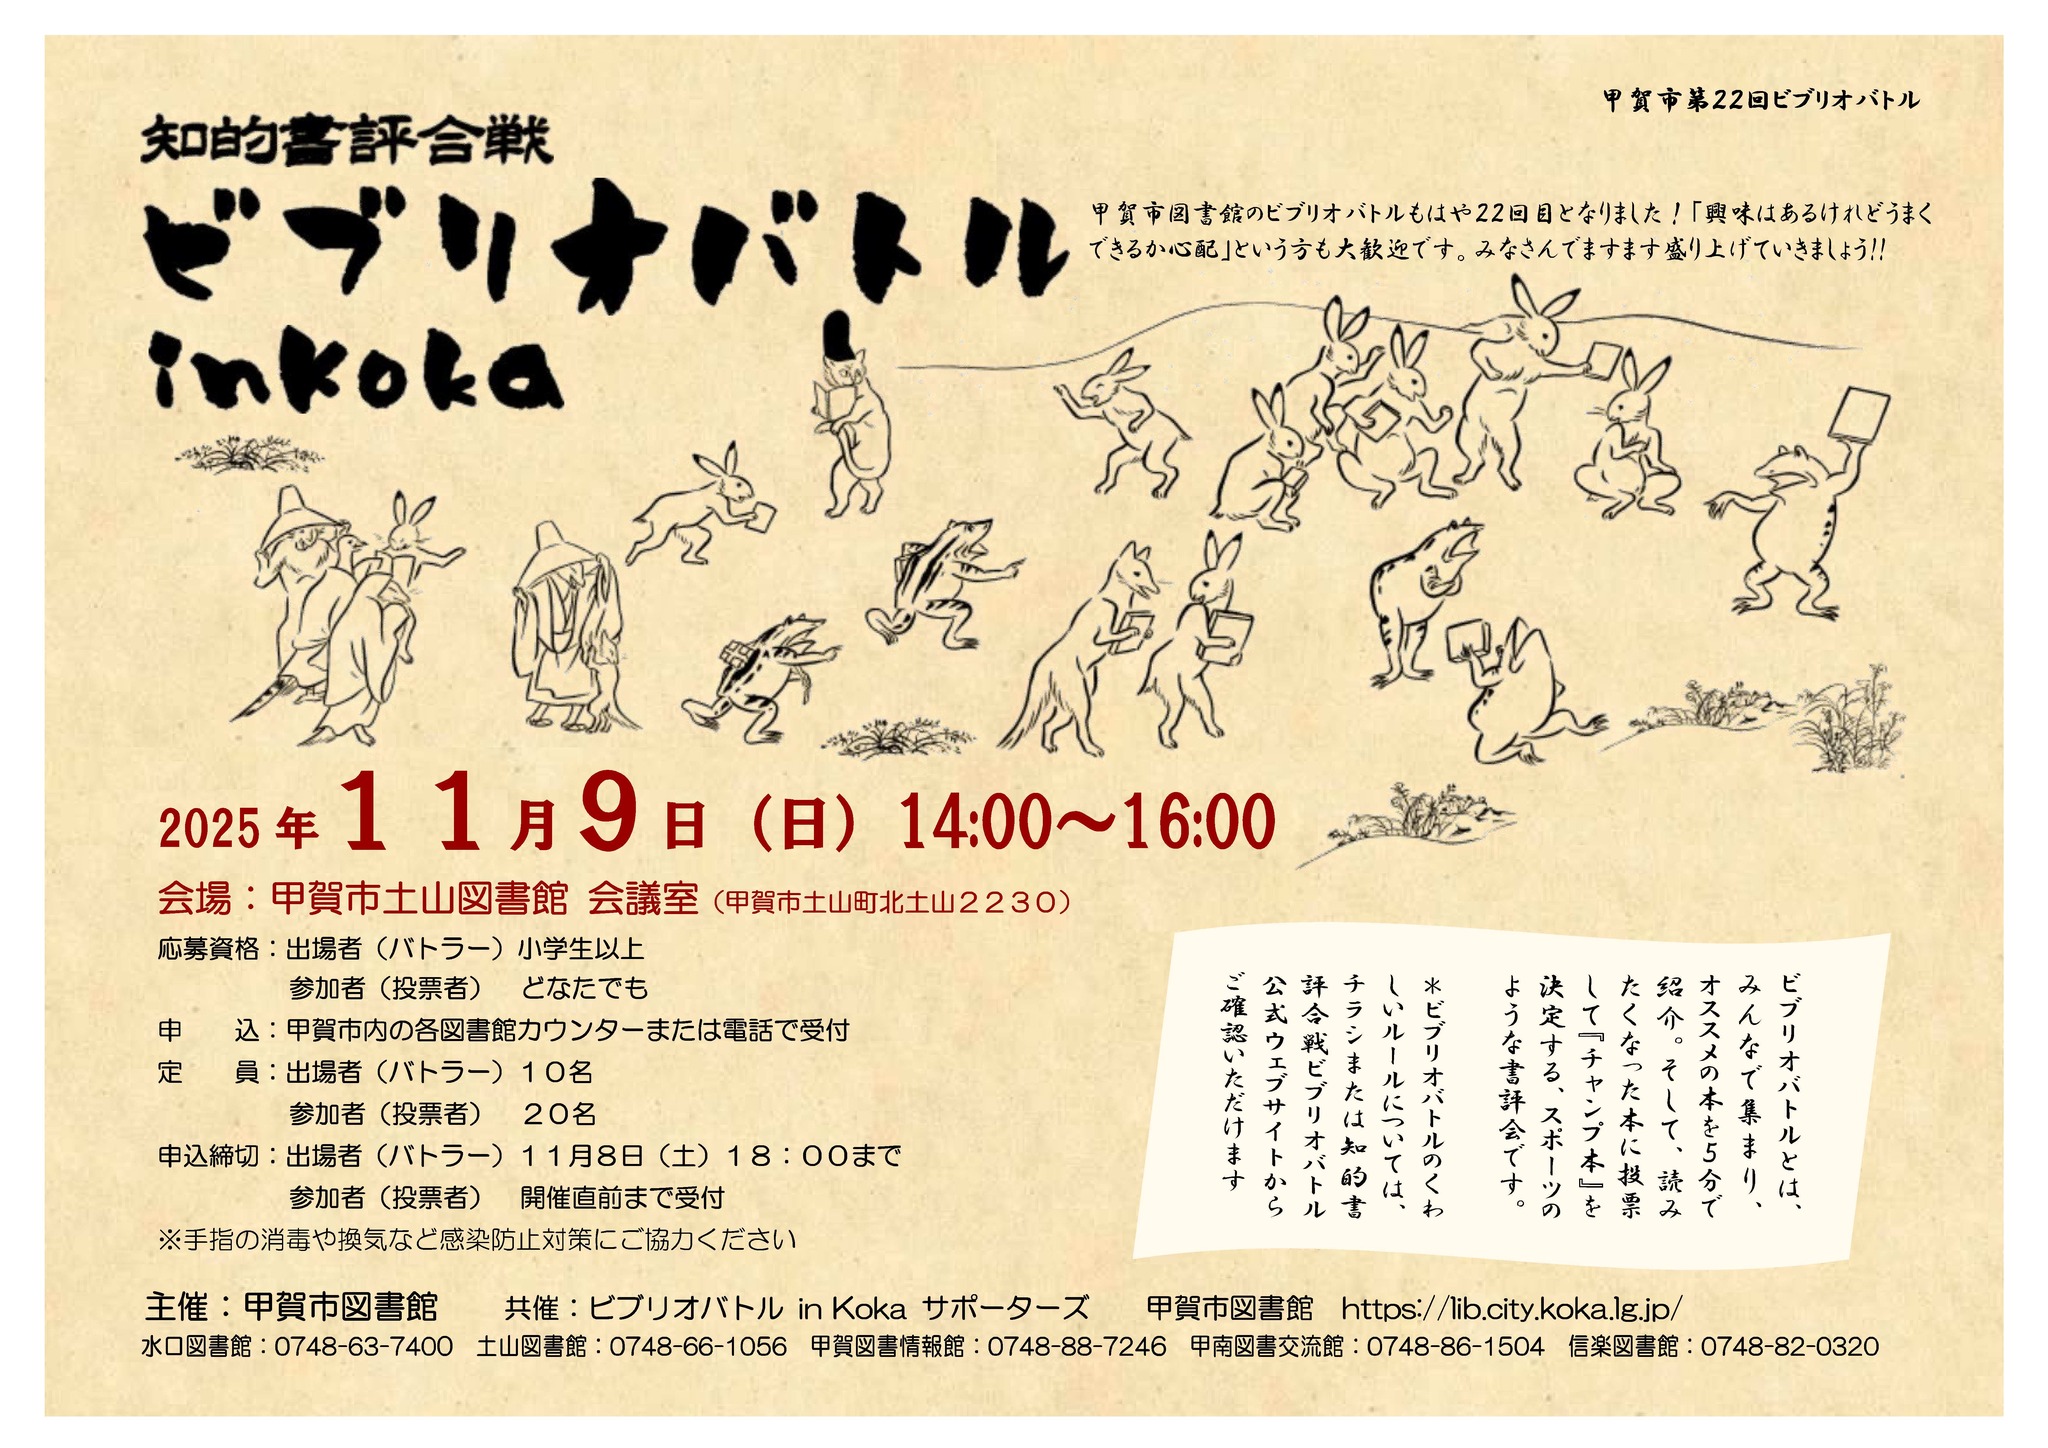 甲賀市第22回ビブリオバトル
知的書評合戦
ビブリオバトル
inKoka
甲賀市図書館のビブリオバトルもはや22回目となりました！「興味はあるけれどうまく
できるか心配」という方も大歓迎です。みなさんでますます盛り上げていきましょう!!
2025年11月9日（日）14:00～16:00
会場：甲賀市土山図書館 会議室（甲賀市土山町北土山２２３０）
応募資格：出場者（バトラー）小学生以上
参加者（投票者）　どなたでも
申　　込：甲賀市内の各図書館カウンターまたは電話で受付
定　　員：出場者（バトラー）１０名
参加者（投票者）　２０名
申込締切：出場者（バトラー）１１月８日（土）１８：００まで
参加者（投票者）　開催直前まで受付
※手指の消毒や換気など感染防止対策にご協力ください
ビブリオバトルとは、
みんなで集まり、
オススメの本を5分で
紹介。そして、読み
たくなった本に投票
して『チャンプ本』を
決定する、スポーツの
ような書評会です。
＊ビブリオバトルのくわ
しいルールについては、
チラシまたは知的書
評合戦ビブリオバトル
公式ウェブサイトから
ご確認いただけます
主催：甲賀市図書館　　共催：ビブリオバトル in Koka サポーターズ　　甲賀市図書館　https://lib.city.koka.lg.jp/
水口図書館：0748-63-7400　土山図書館：0748-66-1056　甲賀図書情報館：0748-88-7246　甲南図書交流館：0748-86-1504　信楽図書館：0748-82-0320